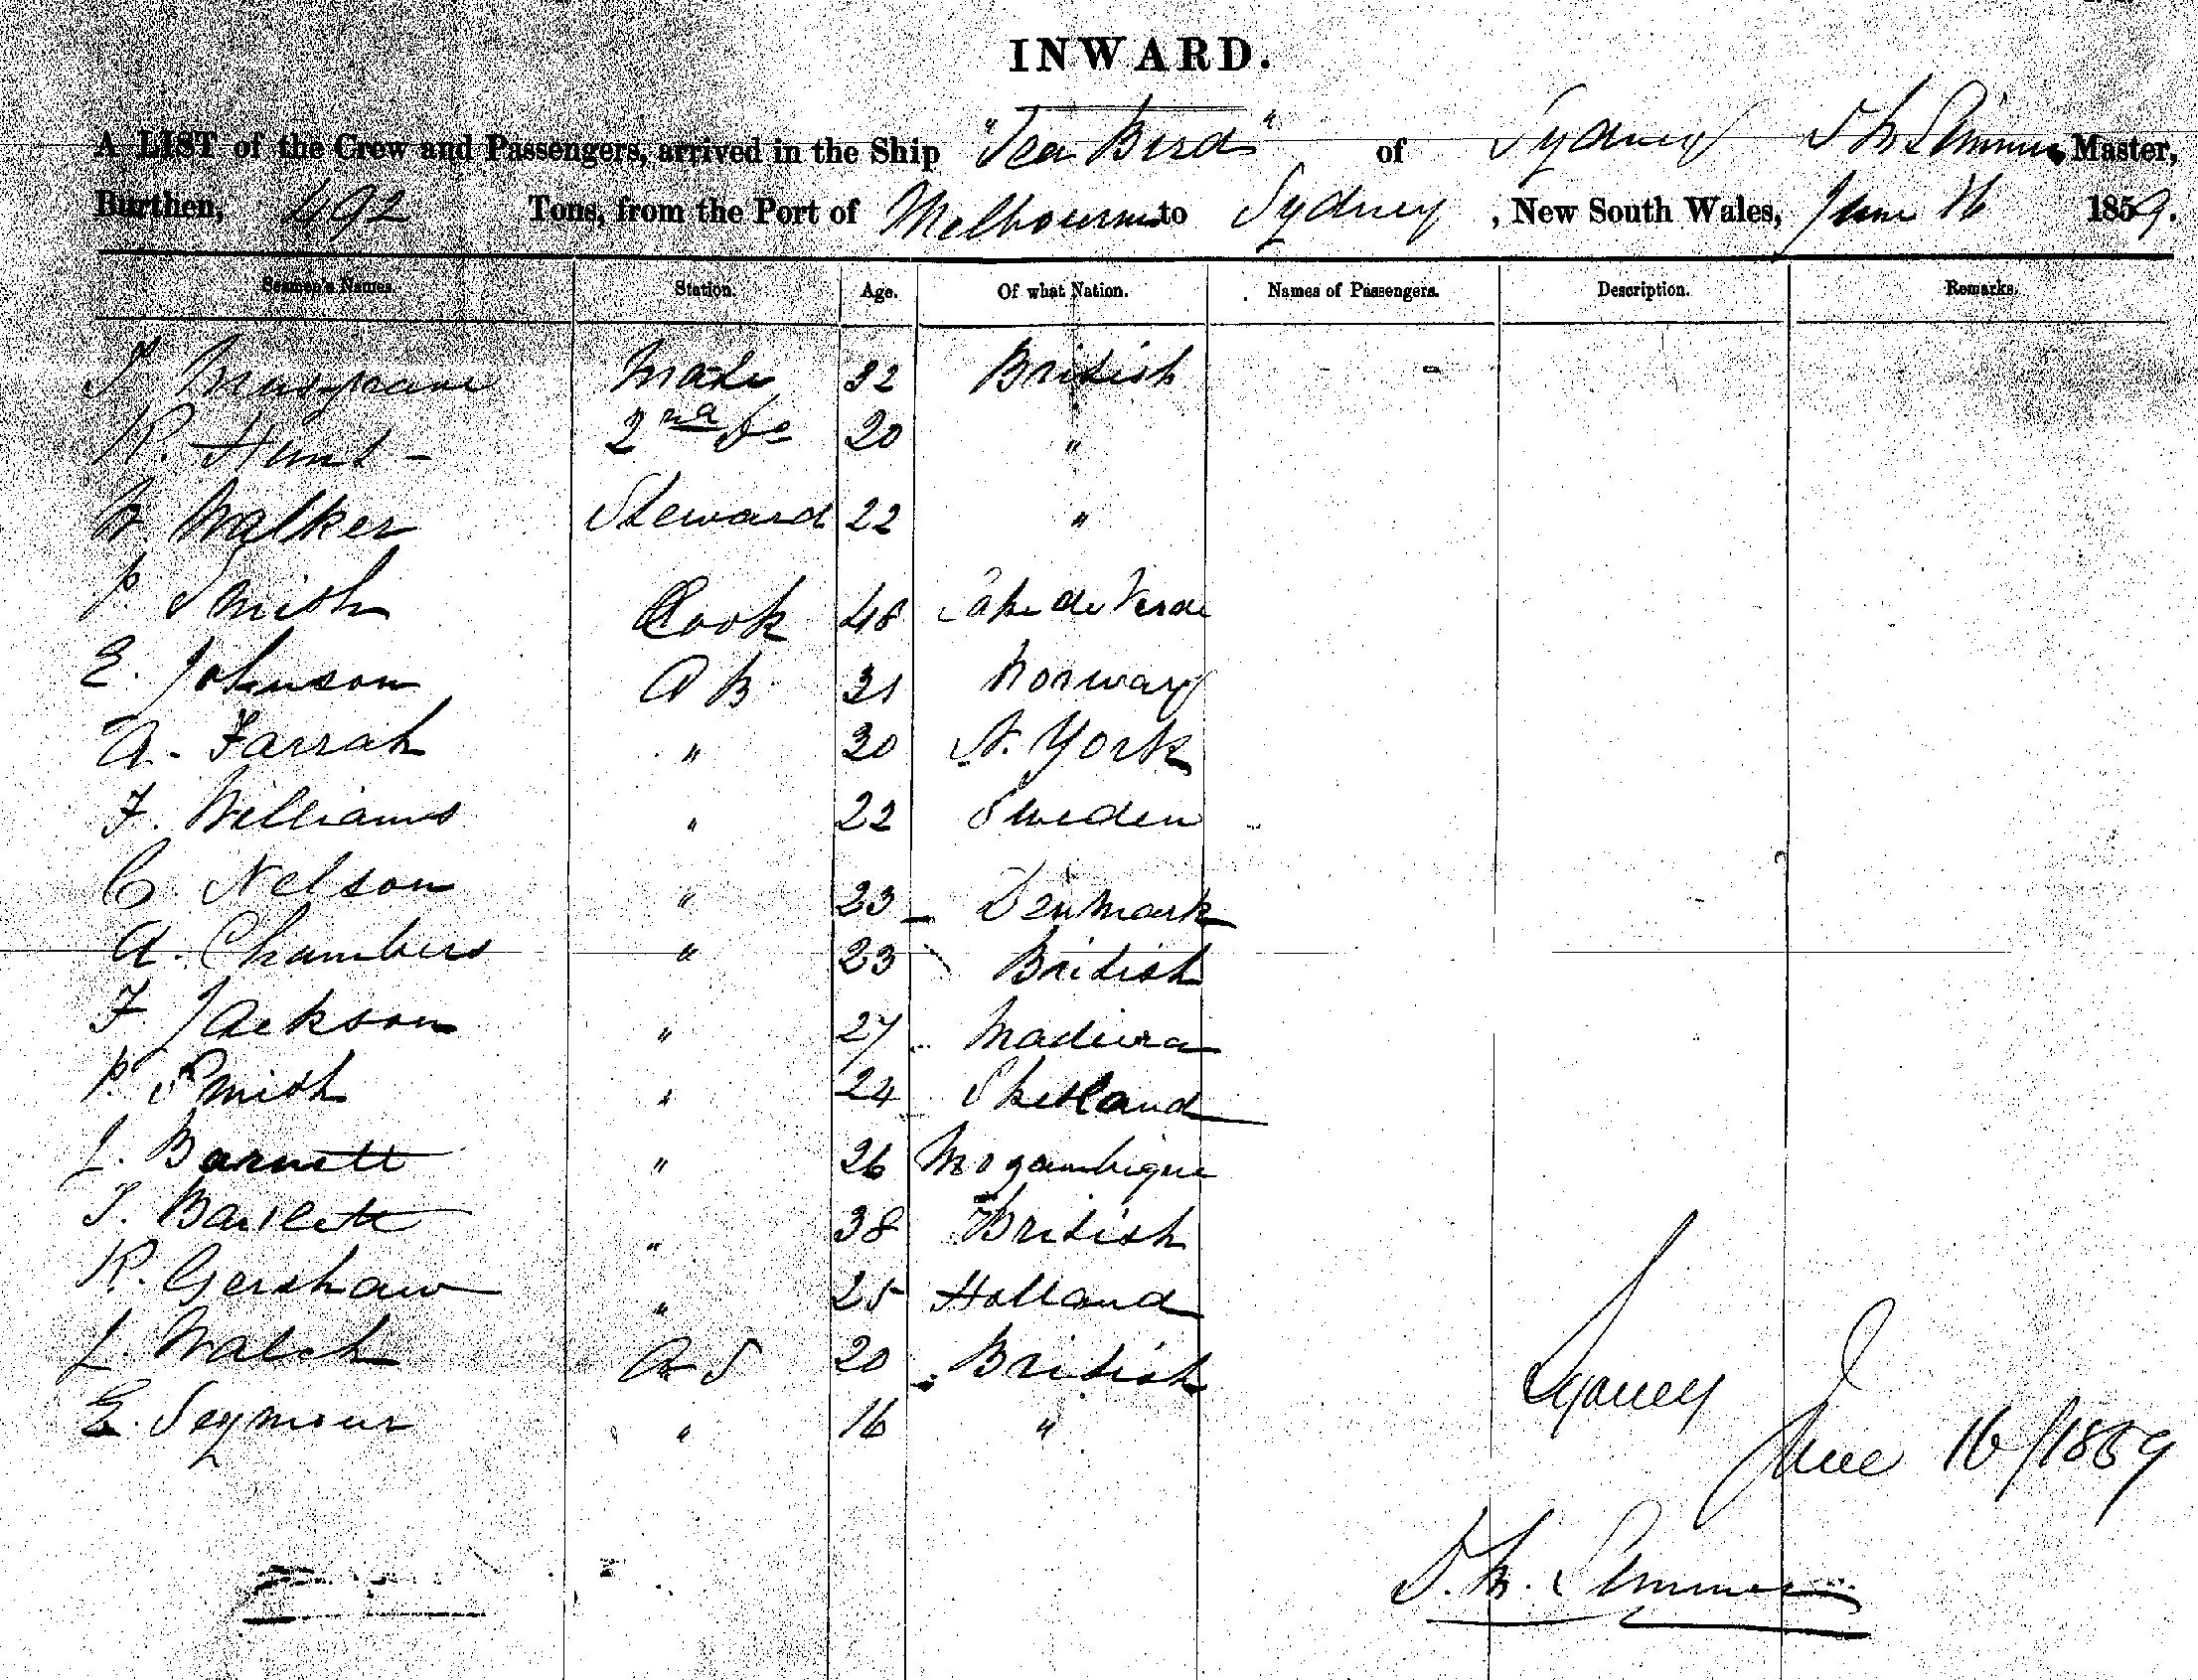 INWARD.
A LIST of the Crew and Passengers, arrived in the Ship "Sea Bird" of Sydney Master,
Burthen, 492 Tons, from the Port of Melbourne to Sydney, New South Wales, June 16 1859.
Seamen's Names. Station. Age. Of what Nation. Names of Passengers. Description. Remarks.
T. Musgrave Mate 32 British
R. Hunt - 2nd Do 20 "
W. Walker Steward 22 "
P. Smith Cook 48 Cape de Verde
E. Johnson A B 31 Norway
A. Farrah " 30 N. York
F. Williams " 22 Sweden
C. Nelson " 23 Denmark
A. Chambers " 23 British
F. Jackson " 27 Madeira
P. Smith " 24 Shetland
J. Barnett " 26 Mozambique
T. Bartlett " 38 British
R. Gershaw " 25 Holland
J. Walsh O S 20 British
E. Seymour " 16 "
Sydney
June 16/1859